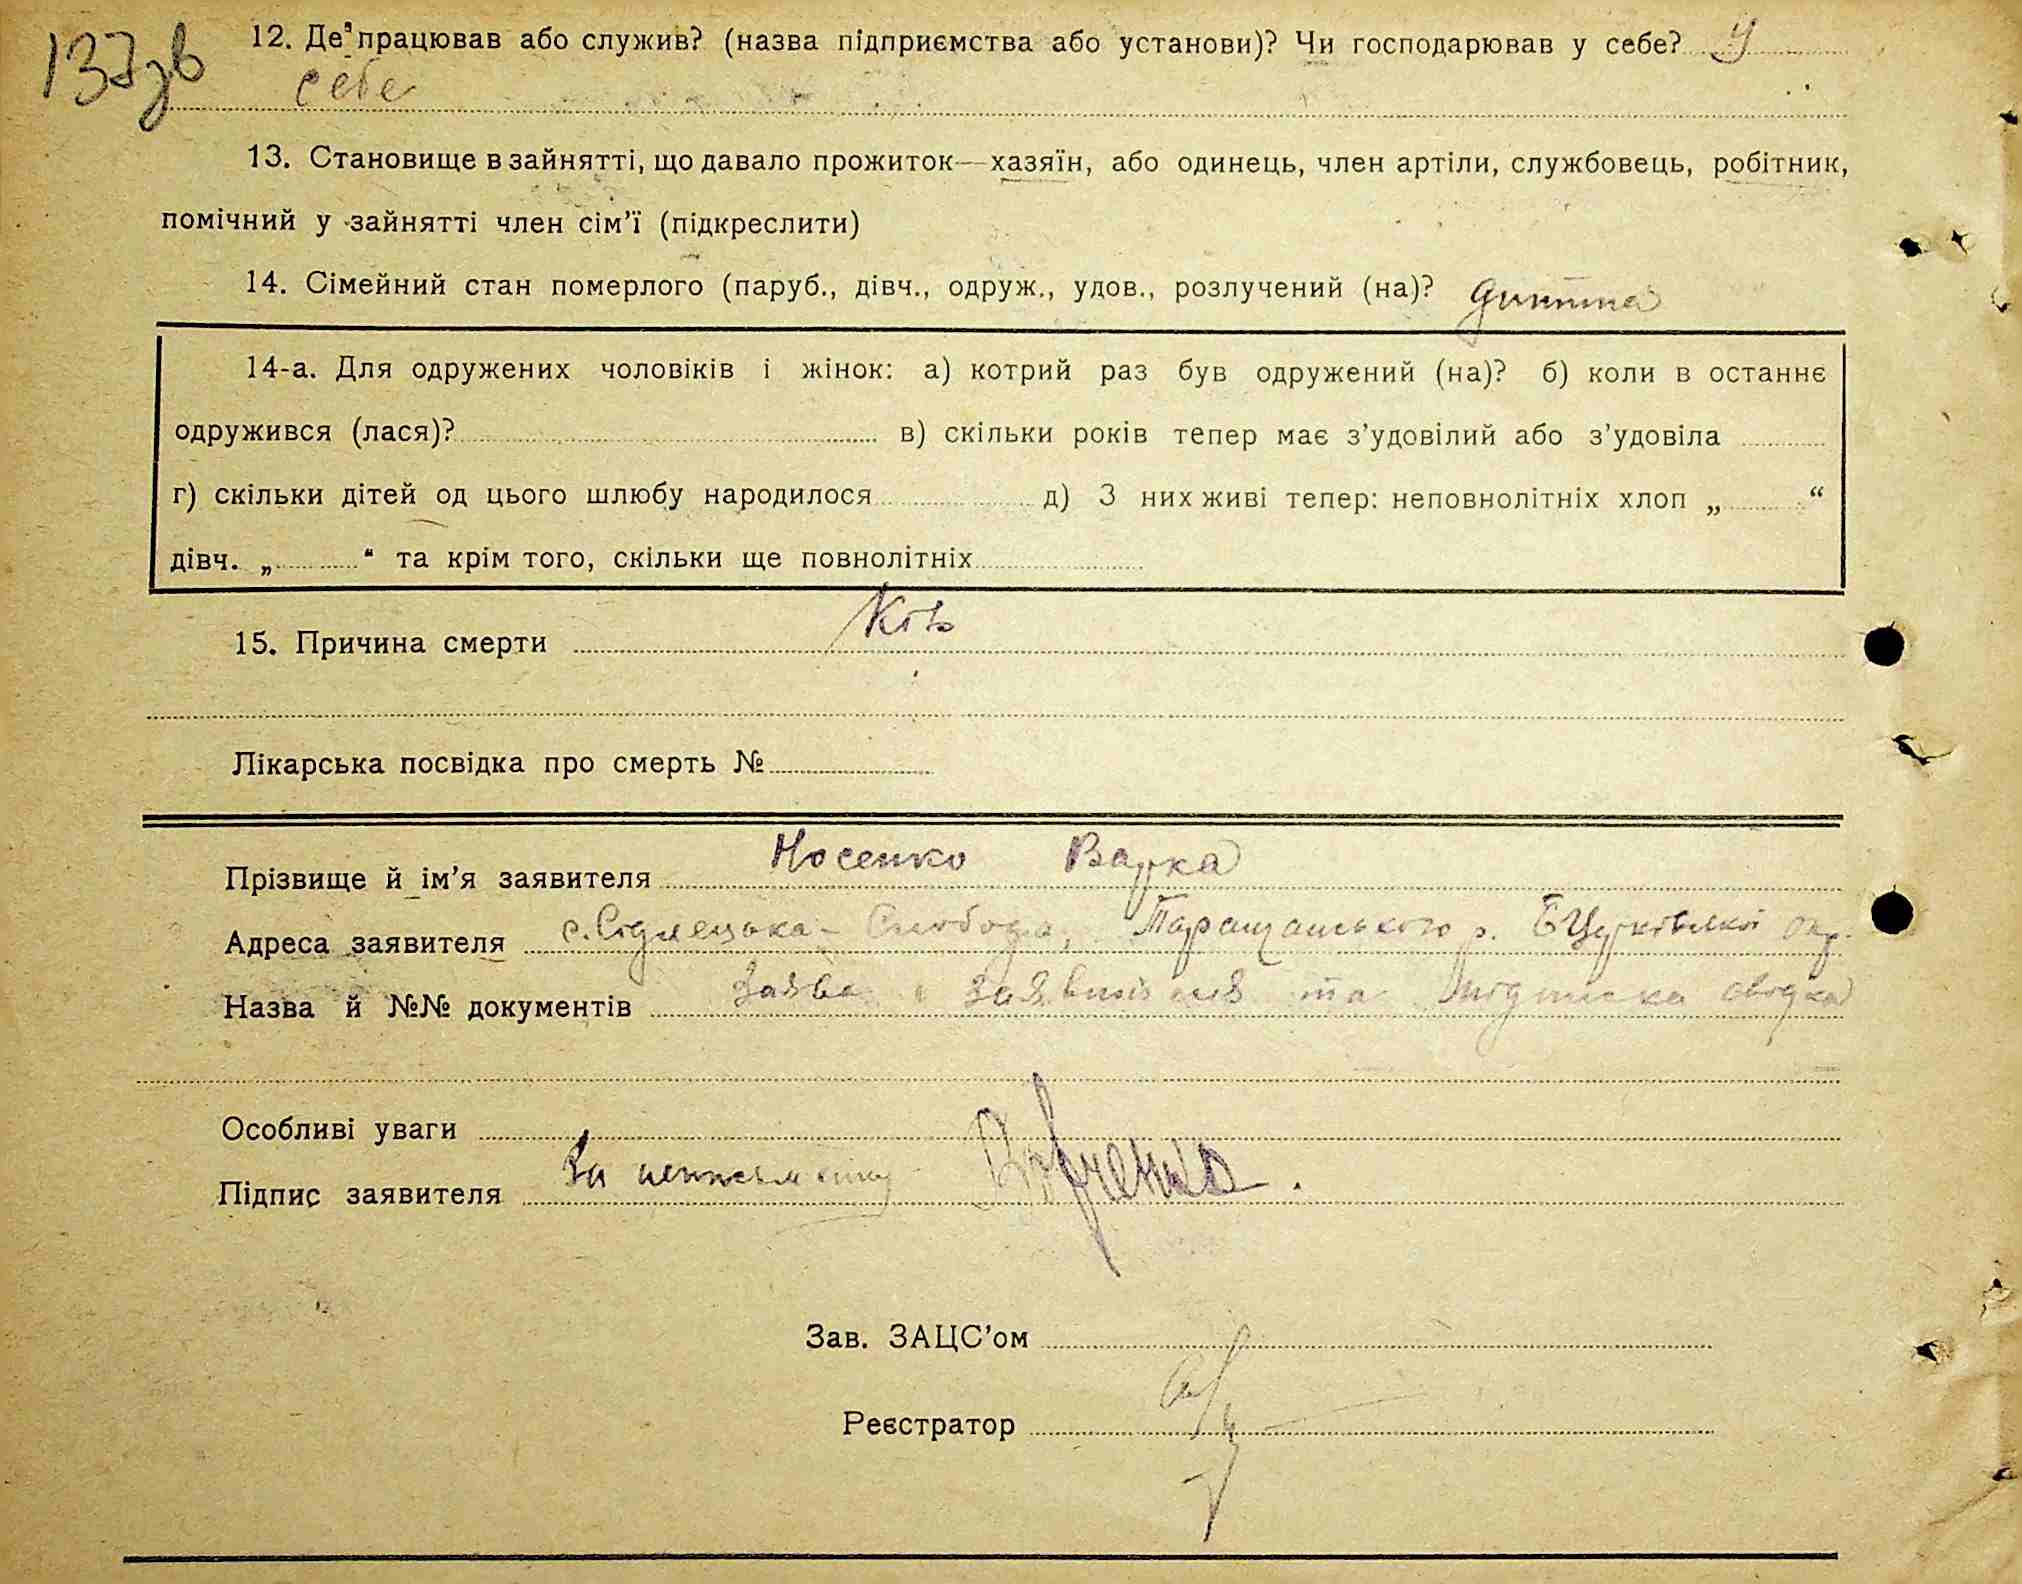 137зв
12. Де працював або служив? (назва підприємства або установи)? Чи господарював у себе? У
себе
13. Становище в зайнятті, що давало прожиток—хазяїн, або одинець, член артіли, службовець, робітник,
помічний у зайнятті член сім’ї (підкреслити)
14. Сімейний стан померлого (паруб., дівч., одруж., удов., розлучений (на)? дитина
14-а. Для одружених чоловіків і жінок: а) котрий раз був одружений (на)? б) коли в останнє
одружився (лася)? в) скільки років тепер має з’удовілий або з’удовіла
г) скільки дітей од цього шлюбу народилося д) З них живі тепер: неповнолітніх хлоп „ “
дівч. „ “ та крім того, скільки ще повнолітніх
15. Причина смерти Кір
Лікарська посвідка про смерть №
Прізвище й ім’я заявителя Носенко Варка
Адреса заявителя с. Сідлецька-Слобода, Таращанського р. БЦерківської окр.
Назва й №№ документів Заява заявителя та підписка свідка
Особливі уваги
Підпис заявителя За неписьменну
Зав. ЗАЦС’ом
Реєстратор